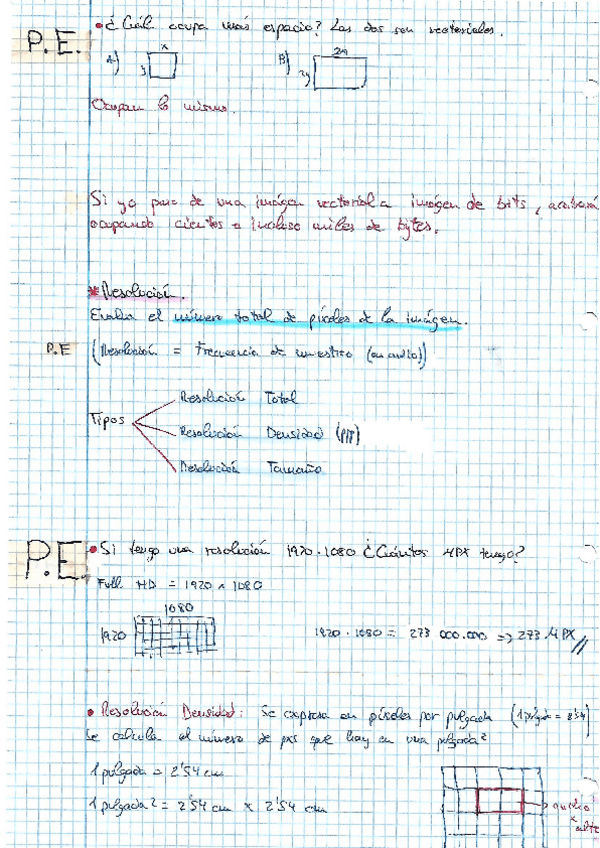 P.E. • ¿Cuál ocupa más espacio? Las dos son vectoriales.
A) x B) 2x
y 2y
Ocupan lo mismo.
Si yo paso de una imágen vectorial a imágen de bits, acabará
ocupando cientos e incluso miles de bytes.
* Resolución.
Evalúa el número total de píxeles de la imágen.
P.E (Resolución = Frecuencia de muestreo (en audio))
Resolución Total
Tipos Resolución Densidad (PPP)
Resolución Tamaño
P.E. • Si tengo una resolución 1920 · 1080 ¿Cuántos MPX tengo?
Full HD = 1920 x 1080
1080
1920 1920 · 1080 = 273 000.000 => 273 MPX //
• Resolución Densidad: Se expresa en píxeles por pulgada (1 pulgada = 2'54
Se calcula el número de pxs que hay en una pulgada²
1 pulgada = 2'54 cm
1 pulgada² = 2'54 cm x 2'54 cm
ancho
x
alto